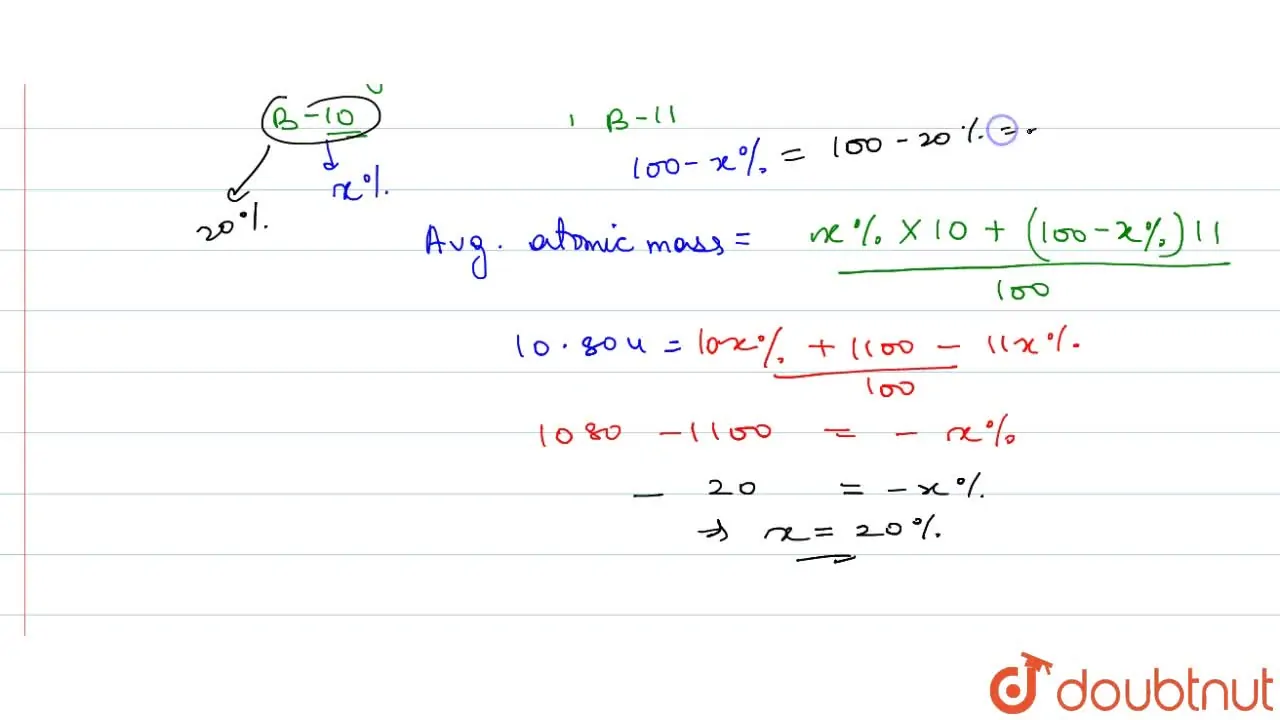 B-10
B-11
100-x% = 100-20% =
x%
20%
Avg. atomic mass = x% × 10 + (100-x%) 11
100
10.80u = 10x% + 1100 - 11x%
100
1080 - 1100 = - x%
- 20 = - x%
⇒ x = 20%
doubtnut